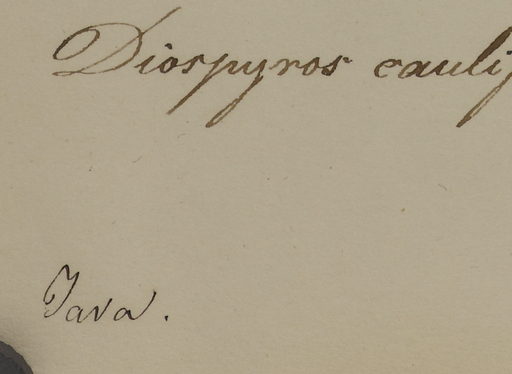 Diospyros cauli
Java.